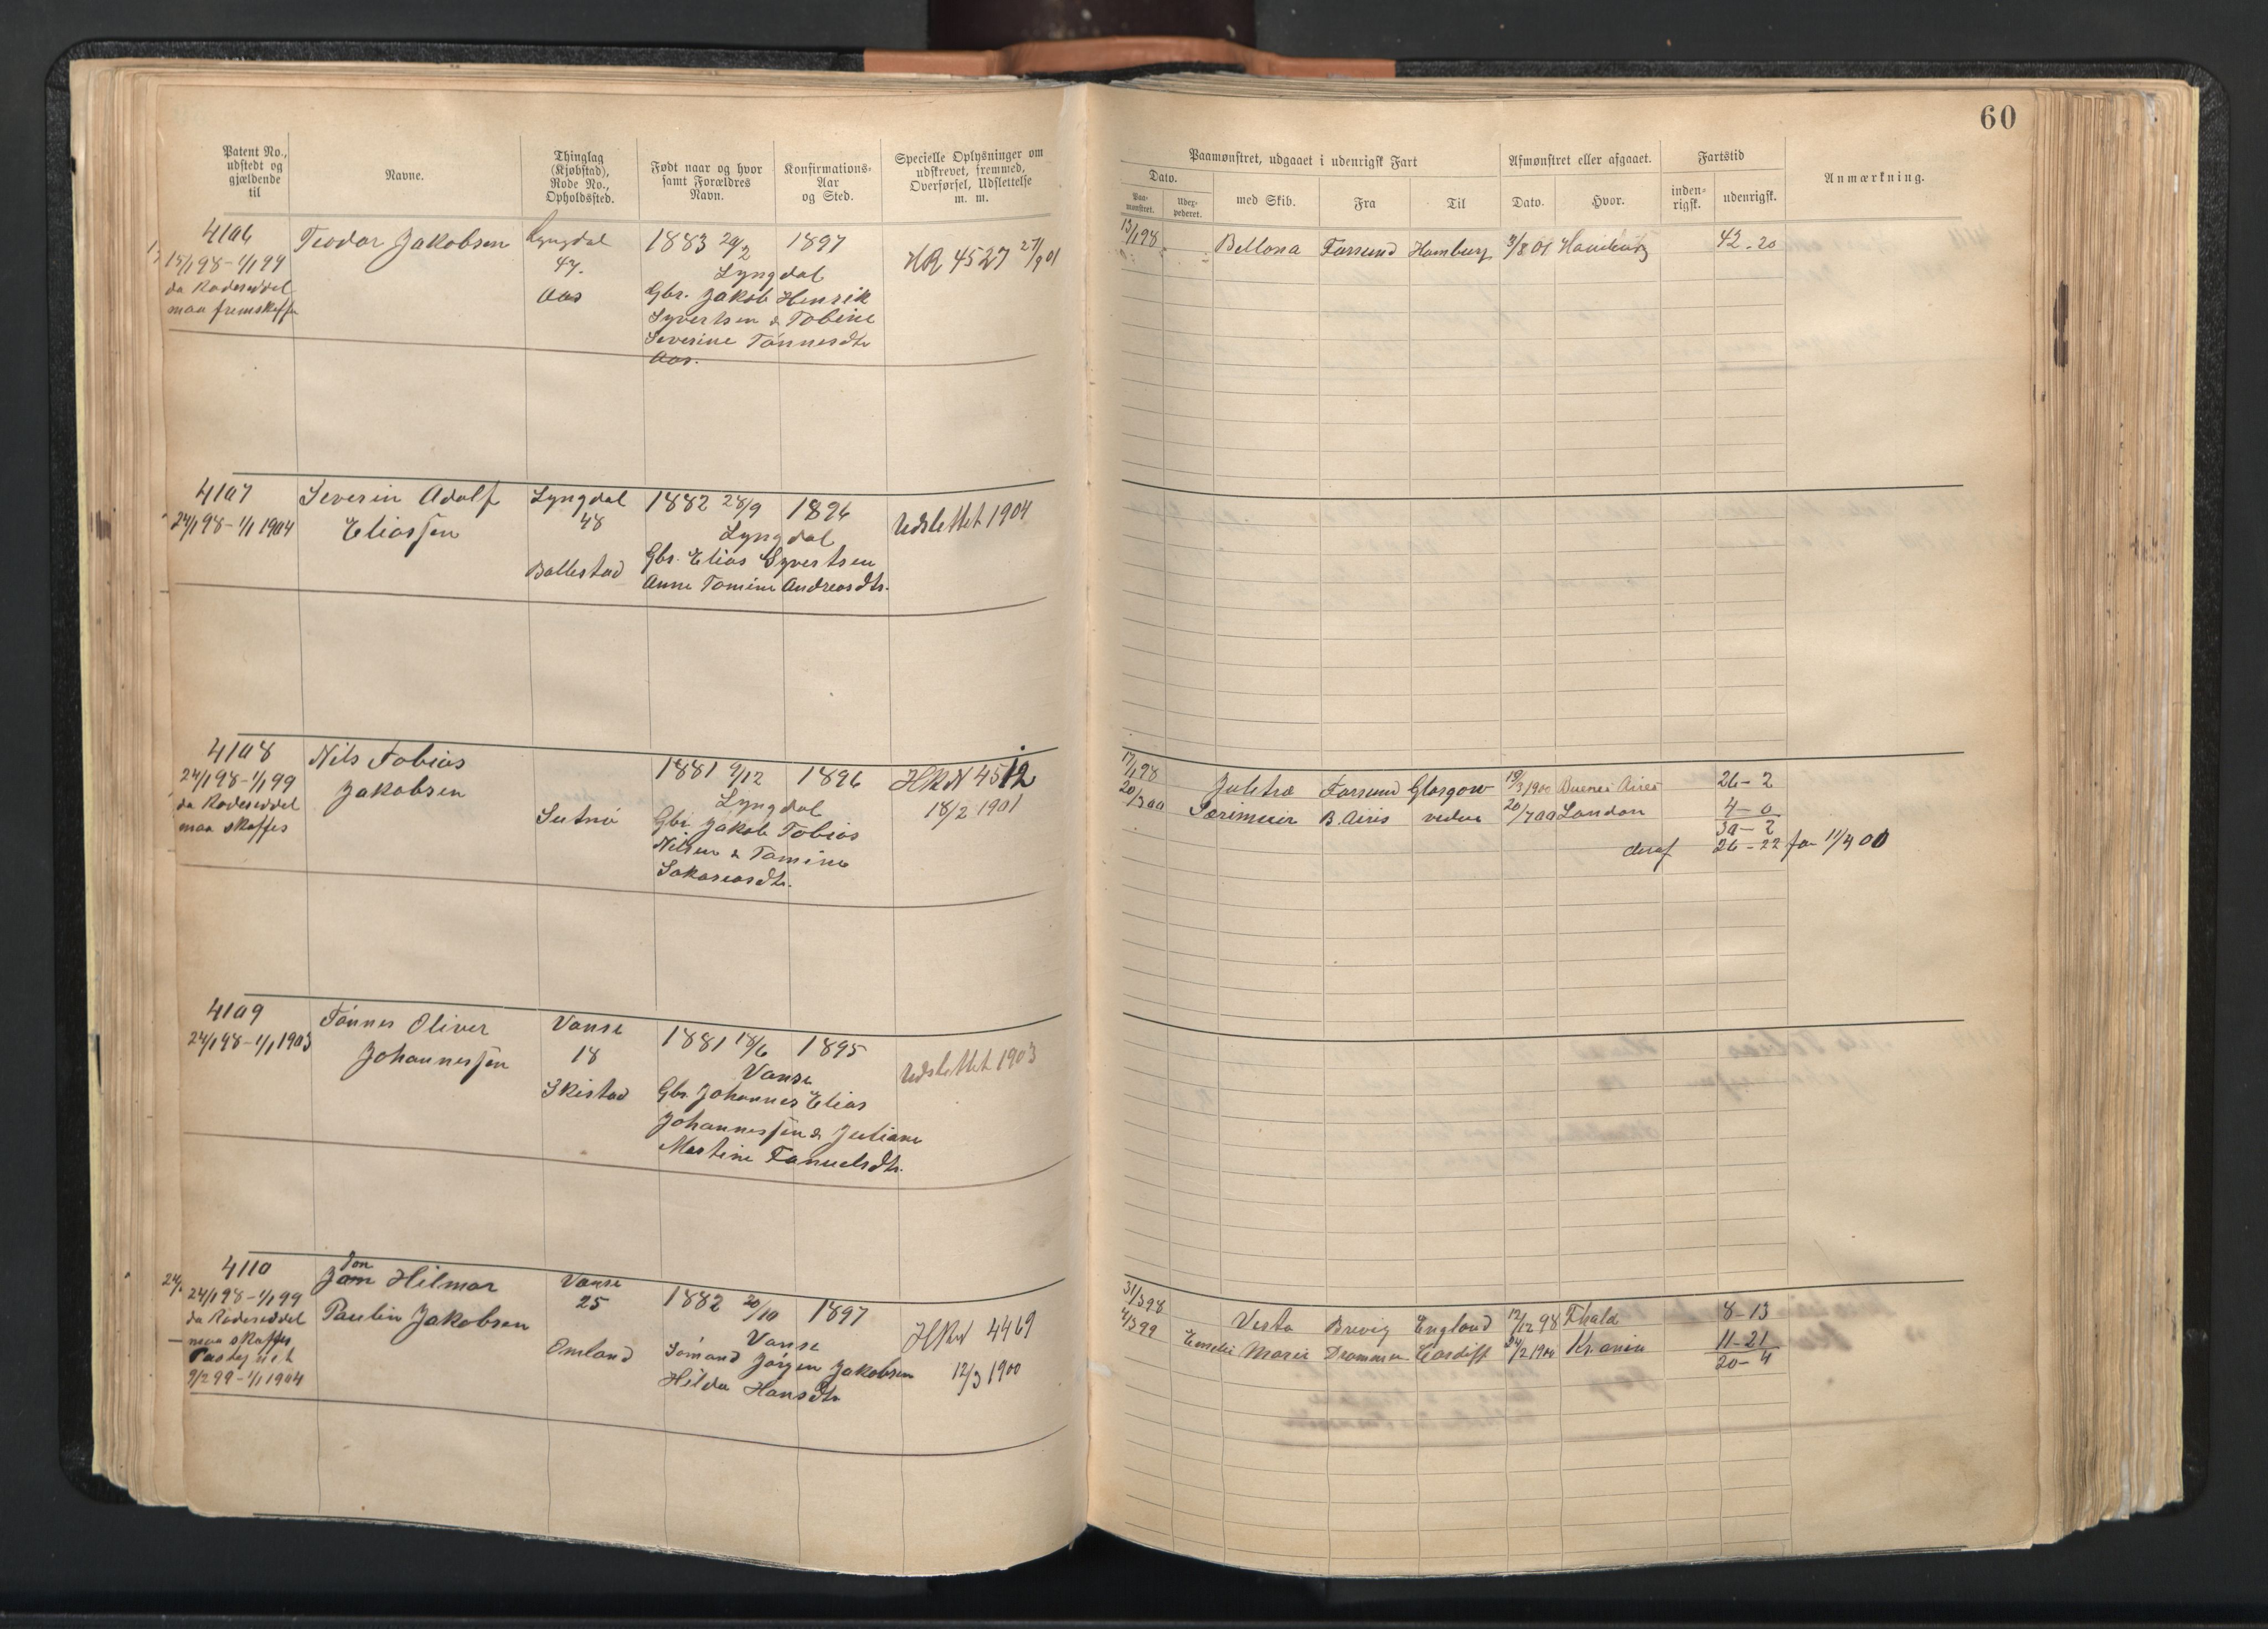 60
Patent No., udstedt og gjældende til
Navne.
Thinglag (Kjøbstad), Rode No., Opholdssted.
Født naar og hvor samt Forældres Navn.
Konfirmations-Aar og Sted.
Specielle Oplysninger om udskrevet, fremmed, Overførsel, Udslettelse m. m.
Paamønstret, udgaaet i udenrigsk Fart
Afmønstret eller afgaaet.
Fartstid
Anmærkning.
Dato.
Paa-mønstret.
Udex-pederet.
med Skib.
Fra
Til
Dato.
Hvor.
inden-rigsk.
udenrigsk.
4106
15/1 98 - 1/1 99
da Rodeseddel
maa fremskaffes
Teodor Jakobsen
Lyngdal
47.
Aas
1883 20/2 1897
Lyngdal
Gbr. Jakob Henrik
Syvertsen & Tobine
Severine Tønnesdtr
Aas.
HR 4527 27/9 01
13/1 98 Bellona Farsund Hamburg 3/8 01 Hamburg 42-20
4107
24/1 98 - 1/1 1904
Severin Adolf
Eliassen
Lyngdal
48
Ballestad
1882 28/9 1896
Lyngdal
Gbr. Elias Syvertsen
Anne Tomine Andreasdtr.
Udslettet 1904
4108
24/1 98 - 1/1 99
da Rodeseddel
maa skaffes
Nils Tobias
Jakobsen
1881 9/12 1896
Lyngdal
Gbr. Jakob Tobias
Nilsen & Tomine
Sakariasdtr.
HRN 4512
18/2 1901
17/1 98 Juletræ Farsund Glasgow 19/3 1900 Buenos Aires 26-2
20/3 00 B. Aires videre 20/7 00 London 4-0
30-2
deraf 26-22 før 11/4 00
4109
24/1 98 - 1/1 1903
Tønnes Oliver
Johannessen
Vanse
18
Skistad
1881 18/6 1895
Vanse
Gbr. Johannes Elias
Johannessen & Juliane
Martine Tanuelsdtr.
Udslettet 1903
4110
24/1 98 - 1/1 99
da Rodeseddel
maa skaffes
9/2 99 - 1/1 1904
Jon
Hilmar
Paulin Jakobsen
Vanse
25
Omland
1882 20/10 1897
Vanse
Sømand Jørgen Jakobsen
Hilda Hansdtr
HRN 4469
12/3 1900
31/3 98 Vesta Brevig England 12/12 98 Thala 8-13
4/3 99 Emelie Marie Drammen Cardiff 24/2 1900 Kr.ania 11-21
20-4